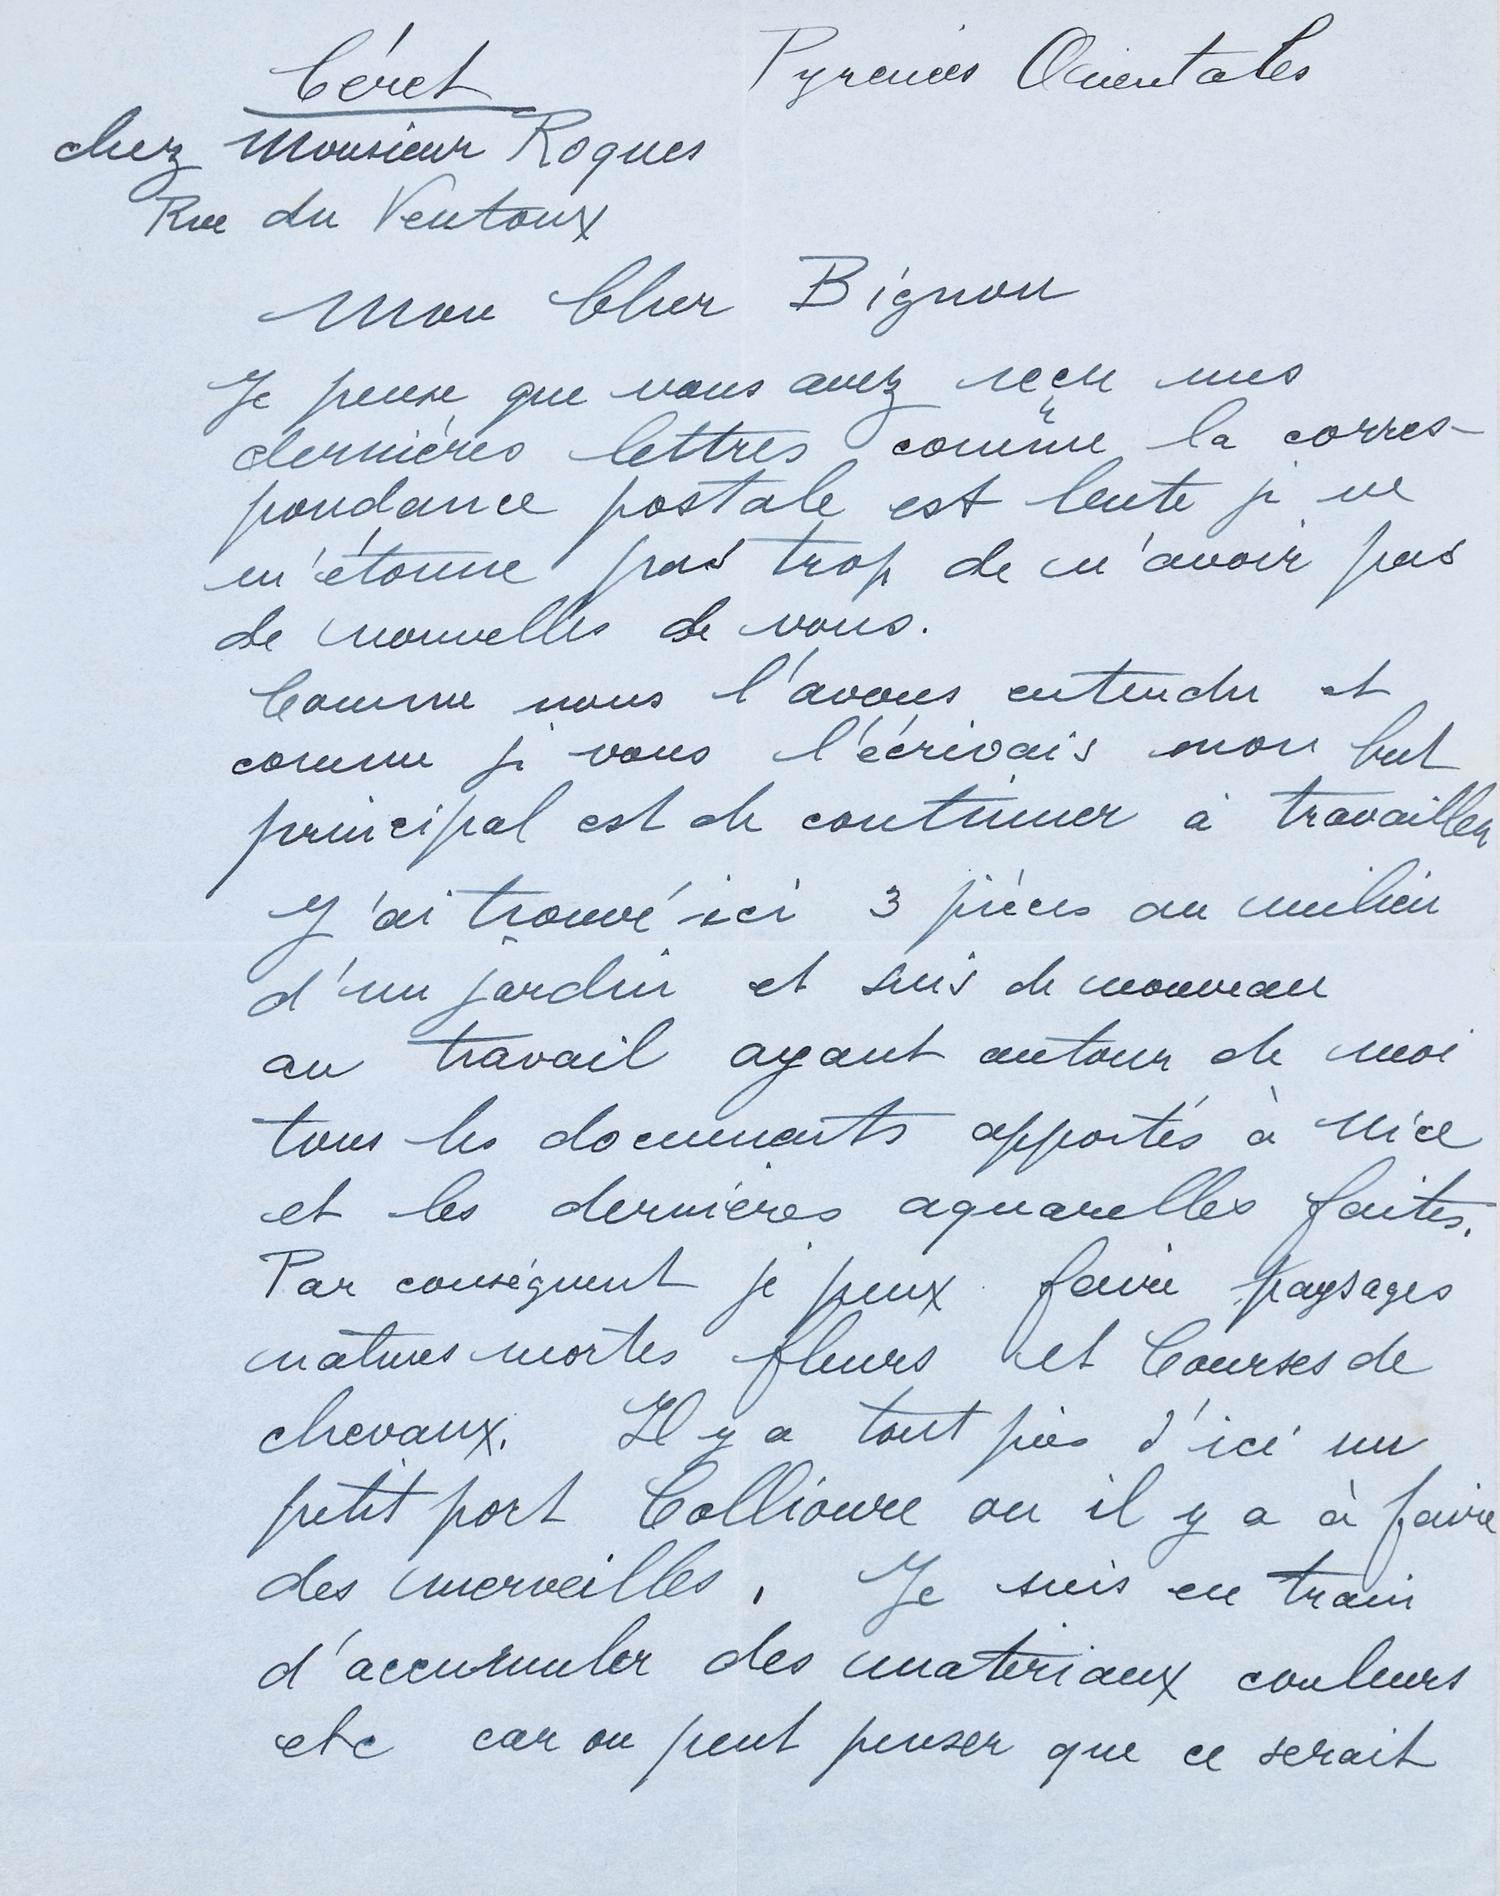 Céret Pyrenées Orientales
chez Monsieur Roques
Rue du Ventoux
Mon Cher Bignou
Je pense que vous avez reçu mes
dernières lettres comme la corres-
pondance postale est lente je ne
m'étonne pas trop de n'avoir pas
de nouvelles de vous.
Comme nous l'avons entendu et
comme je vous l'écrivais mon but
principal est de continuer à travailler
J'ai trouvé ici 3 pièces au milieu
d'un jardin et suis de nouveau
au travail ayant autour de moi
tous les documents apportés à Nice
et les dernières aquarelles faites.
Par conséquent je peux faire paysages
natures mortes fleurs et Courses de
chevaux. Il y a tout près d'ici un
petit port Collioure ou il y a à faire
des merveilles. Je suis en train
d'accumuler des matériaux couleurs
etc car on peut penser que ce serait